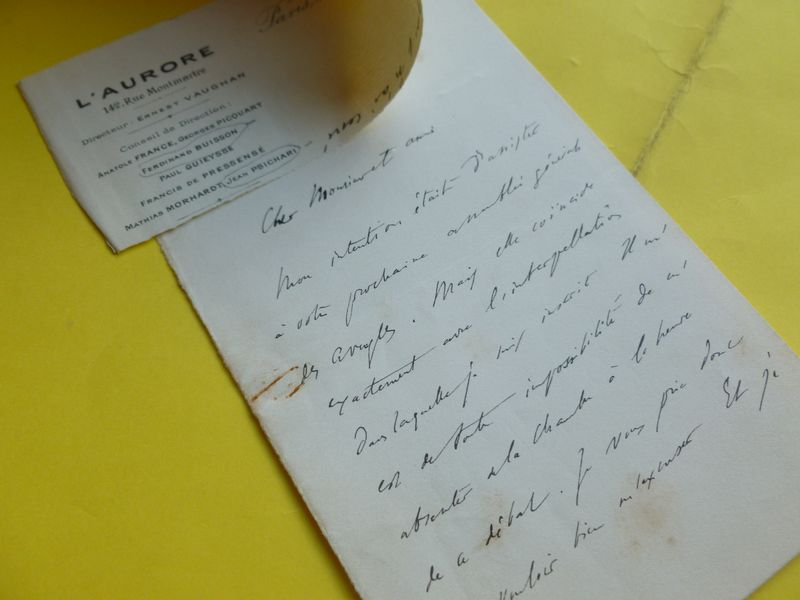 L'AURORE
142, Rue Montmartre
Directeur: ERNEST VAUGHAN
Conseil de Direction:
ANATOLE FRANCE, GEORGES PICQUART
FERDINAND BUISSON
PAUL GUIEYSSE
FRANCIS DE PRESSENSÉ
MATHIAS MORHARDT, JEAN PSICHARI
Paris,
Cher Monsieur et ami
Mon intention était d'assister
à votre prochaine assemblée générale
des aveugles. Mais elle coïncide
exactement avec l'interpellation
dans laquelle je suis inscrit Il m'
est de toute impossibilité de m'
absenter de la Chambre à l'heure
de ce débat. Je vous prie donc
vouloir bien m'excuser Et je